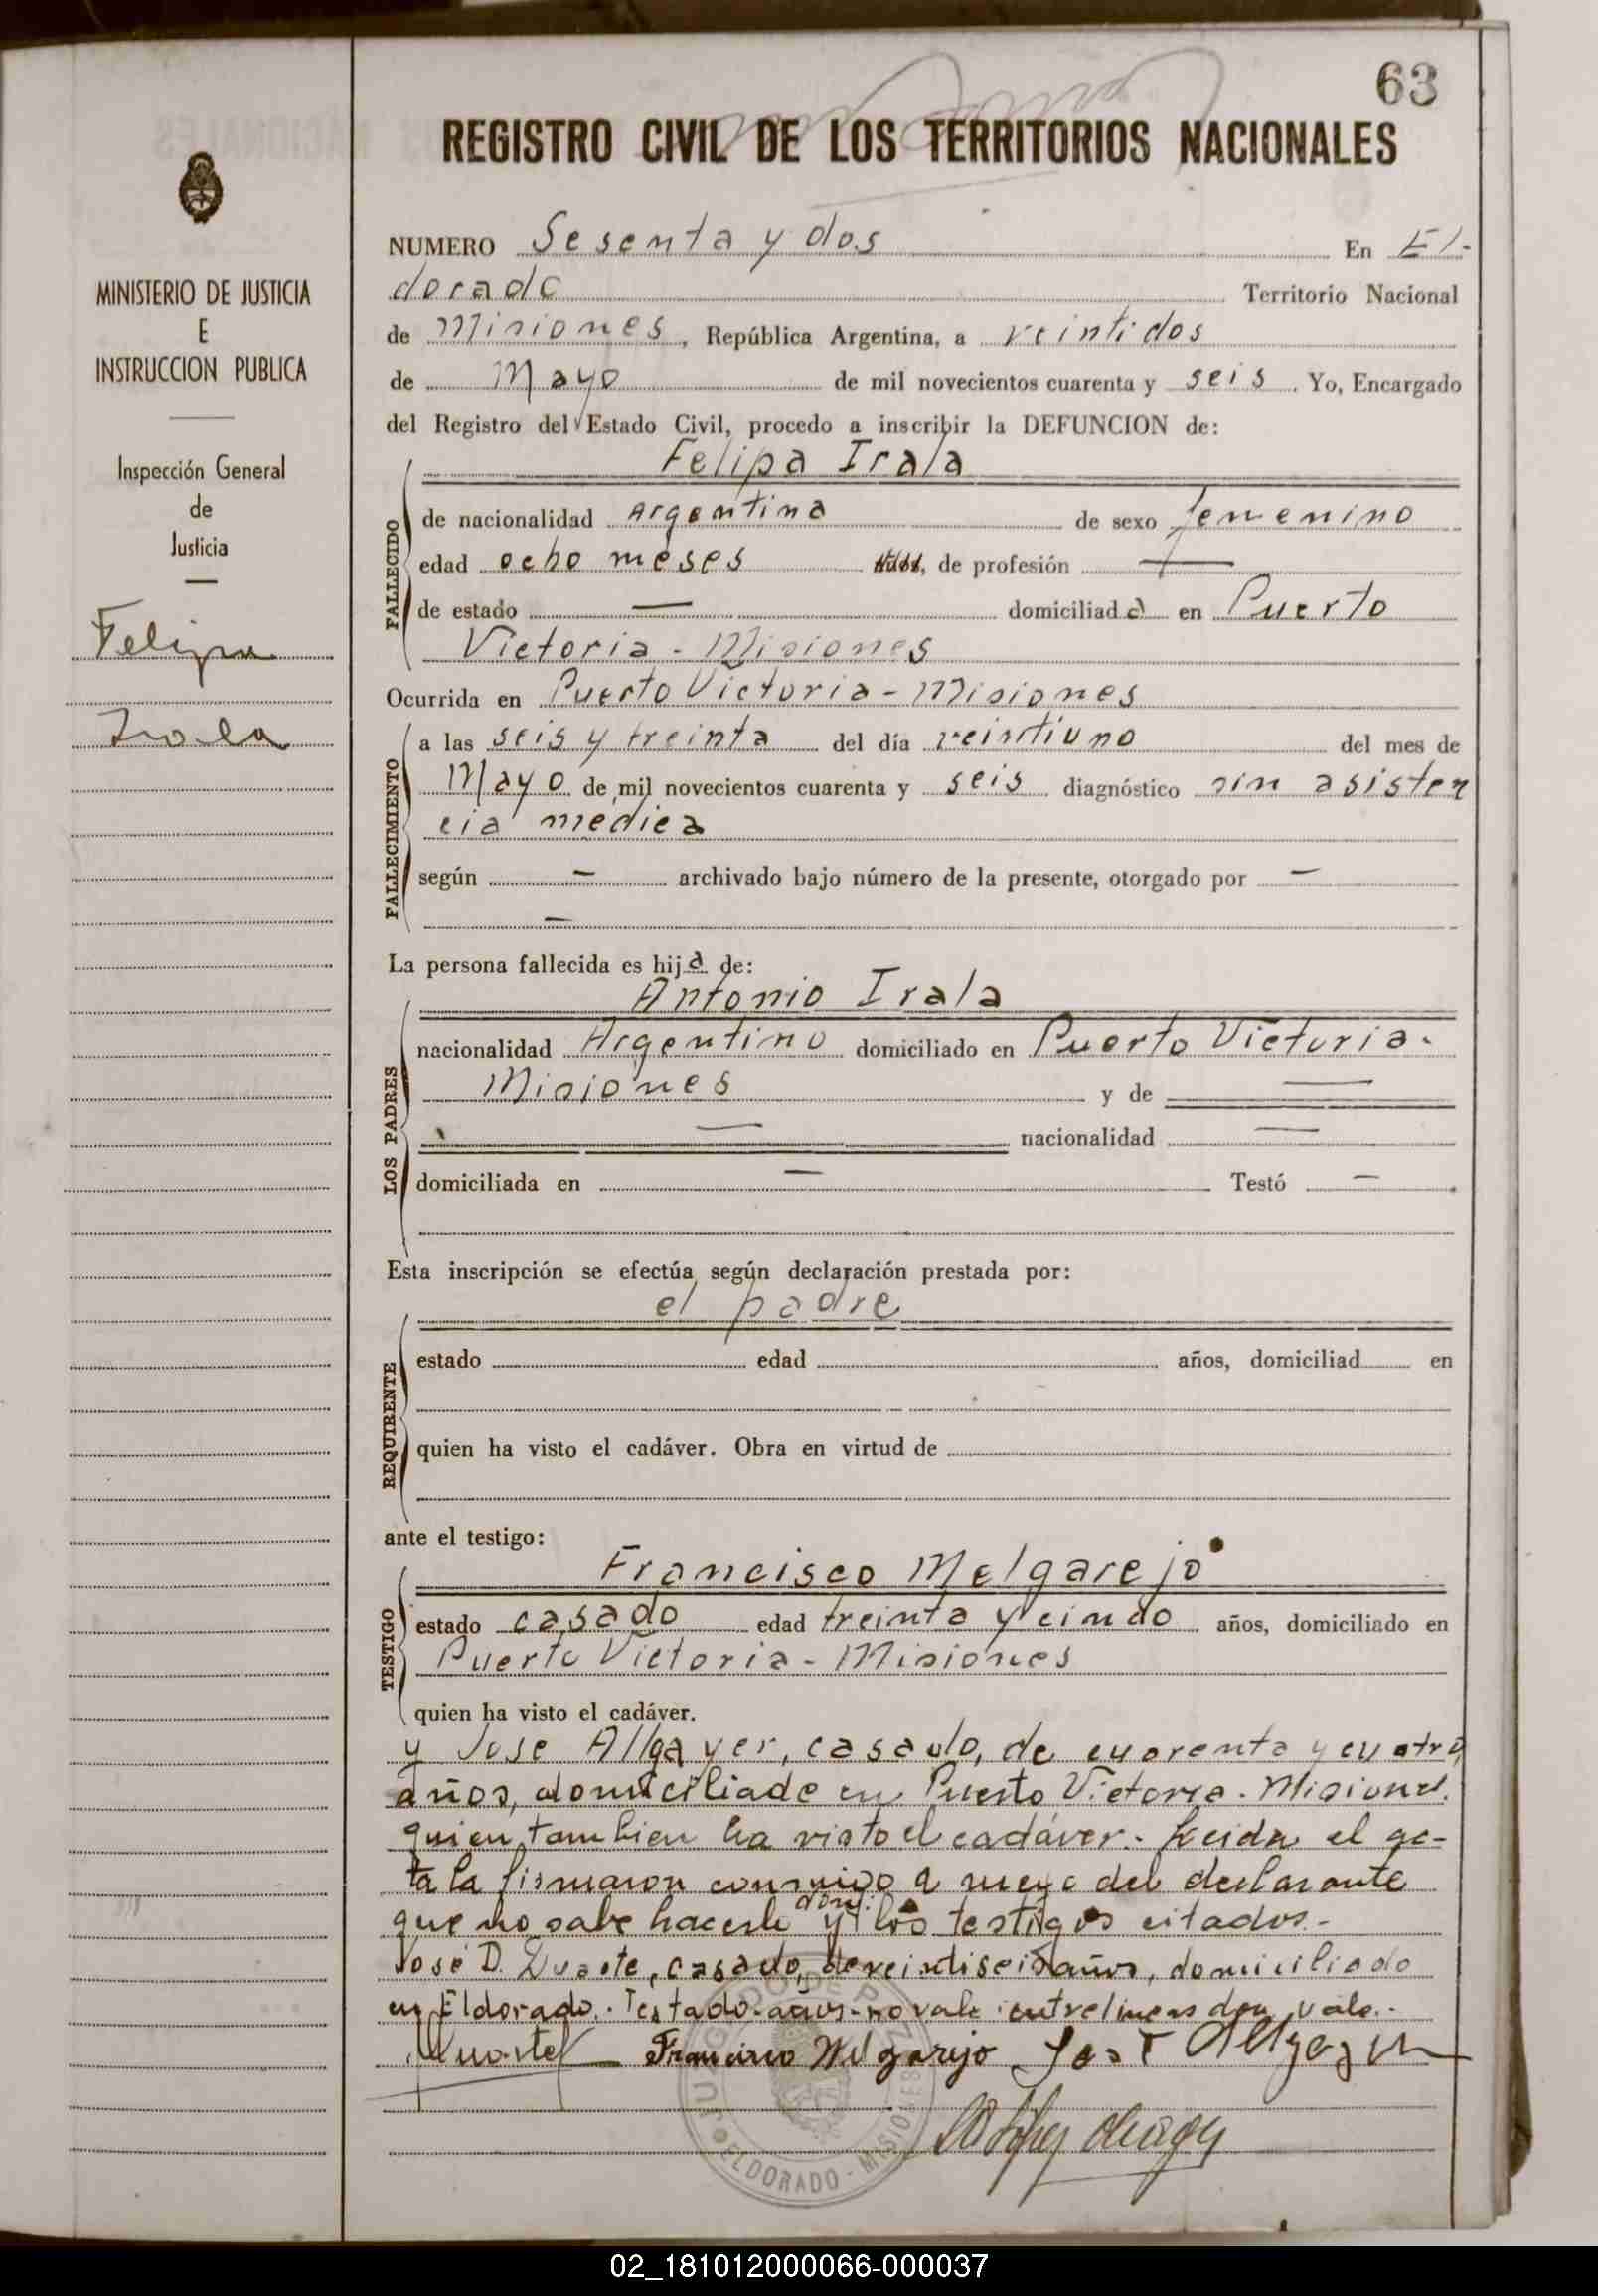 63
REGISTRO CIVIL DE LOS TERRITORIOS NACIONALES
MINISTERIO DE JUSTICIA
E
INSTRUCCION PUBLICA
Inspección General
de
Justicia
Felipa
Irala
NUMERO Sesenta y dos En El-
dorado Territorio Nacional
de Misiones, República Argentina, a veintidos
de Mayo de mil novecientos cuarenta y seis. Yo, Encargado
del Registro del Estado Civil, procedo a inscribir la DEFUNCION de:
Felipa Irala
FALLECIDO
de nacionalidad Argentina de sexo femenino
edad ocho meses años, de profesión —
de estado — domiciliada en Puerto
Victoria - Misiones
Ocurrida en Puerto Victoria - Misiones
FALLECIMIENTO
a las seis y treinta del día veintiuno del mes de
Mayo de mil novecientos cuarenta y seis diagnóstico sin asisten
cia medica
según — archivado bajo número de la presente, otorgado por —
—
La persona fallecida es hija de:
Antonio Irala
LOS PADRES
nacionalidad Argentino domiciliado en Puerto Victoria -
Misiones y de —
— nacionalidad —
domiciliada en — Testó —
Esta inscripción se efectúa según declaración prestada por:
el padre
REQUIRENTE
estado edad años, domiciliad en
quien ha visto el cadáver. Obra en virtud de
ante el testigo:
Francisco Melgarejo
TESTIGO
estado casado edad treinta y cinco años, domiciliado en
Puerto Victoria - Misiones
quien ha visto el cadáver.
y Jose Allgayer, casado, de cuarenta y cuatro
años, domiciliado en Puerto Victoria - Misiones.
quien tambien ha visto el cadáver. Leida el ac-
ta la firmaron conmigo a ruego del declarante
que no sabe hacerlo don: y los testigos citados.-
José D. Duarte, casado, de veintiseis años, domiciliado
en Eldorado. Testado-años-no vale: entrelineas don, vale.-
Duarte Francisco Melgarejo José Allgayer
JUZGADO DE PAZ
ELDORADO - MISIONES
02_181012000066-000037